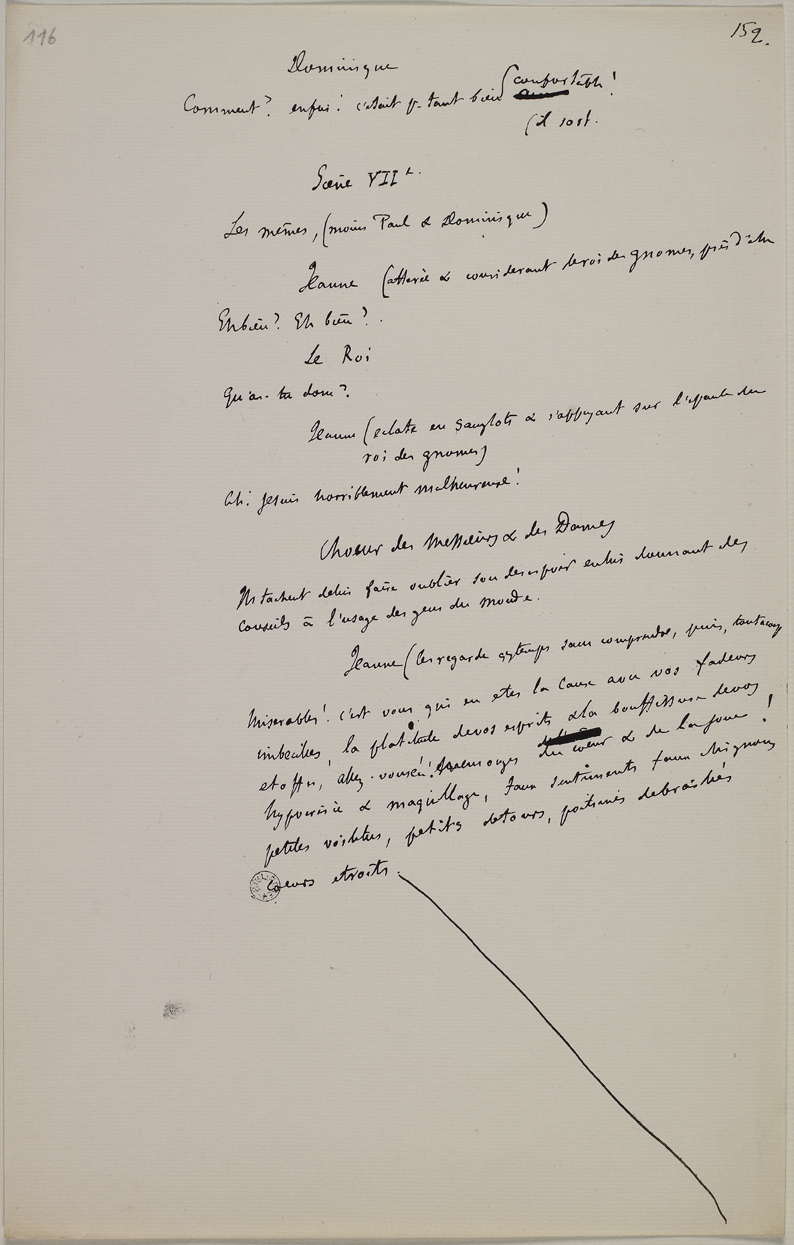 116
152.
Dominique
Comment? enfin! c'était pr tant bien confortable!
(il sort.
Scène VIIe.
Les mêmes, (moins Paul & Dominique)
Jeanne (atterrée & considerant le roi des gnomes, près d'elle
Eh bien? Eh bien?
Le Roi
Qu'as-tu donc?
Jeanne (eclate en sanglots & s'appuyant sur l'epaule du
roi des gnomes)
Ah! je suis horriblement malheureuse!
Choeur des Messieurs & des Dames
Ils tachent de lui faire oublier son desespoir en lui donnant des
conseils à l'usage des gens du monde.
Jeanne (les regarde qq temps sans comprendre, puis, tout à coup
Miserables! c'est vous qui en etes la cause avec vos fadeurs
imbeciles, la platitude de vos esprits & la bouffissure de vos
etoffes, allez-vous en! mensonges du coeur & de la joue!
hypocrisie & maquillage, faux sentiments faux chignons
petites voilettes, petits detours, poitrines debraillés
Coeurs etroits.